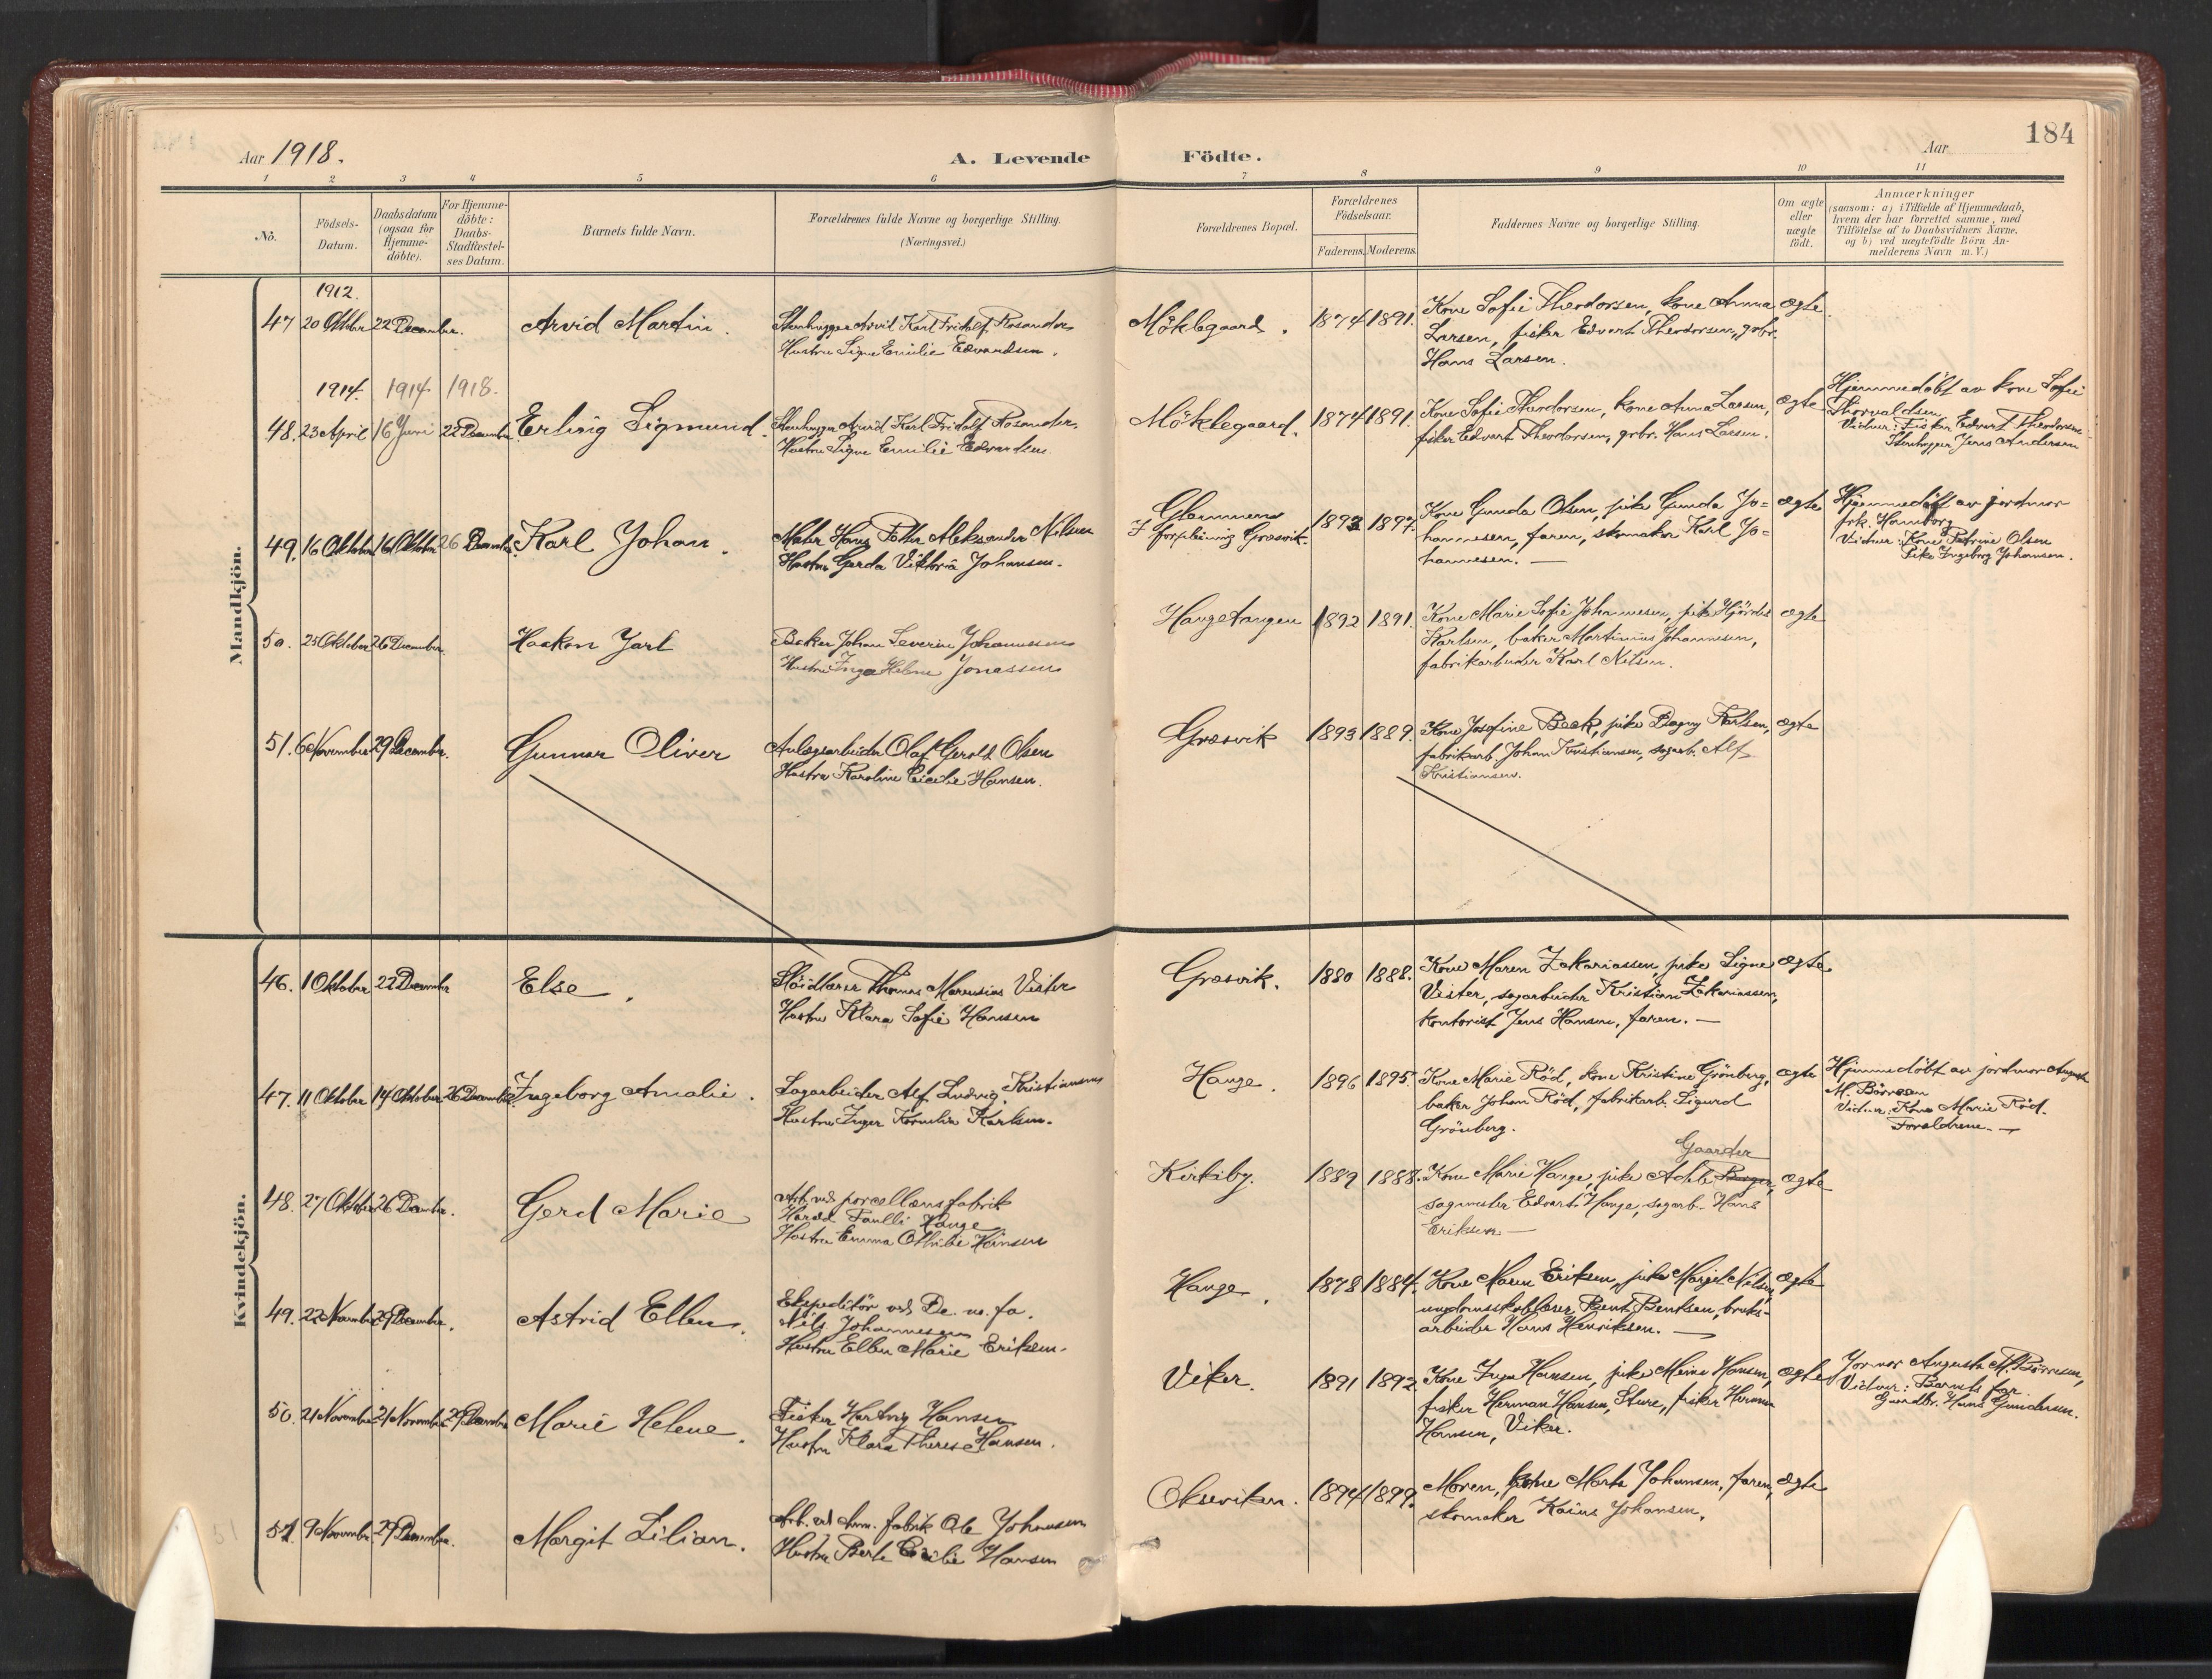 Aar 1918.
A. Levende Födte.
Aar
184
1 2 3 4 5 6 7 8 9 10 11
No.
Födsels-
Datum.
Daabsdatum
(ogsaa för
Hjemme-
döbte).
For Hjemme-
döbte:
Daabs-
Stadfæstel-
ses Datum.
Barnets fulde Navn.
Forældrenes fulde Navne og borgerlige Stilling.
(Næringsvei.)
Forældrenes Bopæl.
Forældrenes
Födselsaar.
Faderens. Moderens.
Faddernes Navne og borgerlige Stilling.
Om ægte
eller
uægte
födt.
Anmærkninger
(saasom: a) i Tilfælde af Hjemmedaab,
hvem der har forrettet samme, med
Tilföielse af to Daabsvidners Navne,
og b) ved uægtefödte Börn An-
melderens Navn m.V.)
Mandkjön.
1912.
47 20 Oktober 22 December. Arvid Martin. Stenhugger Arvid Karl Fridolf Rosander
Hustru Signe Emilie Edvardsen.
Möklegaard. 1874 1891. Kone Sofie Theodorsen, kone Anna
Larsen, fisker Edvart Theodorsen, gbr.
Hans Larsen.
ægte.
1914. 1914. 1918.
48. 23 April 16 Juni 22 December. Erling Sigmund. Stenhugger Arvid Karl Fridolf Rosander.
Hustru Signe Emilie Edvardsen
Möklegaard. 1874 1891. Kone Sofie Theodorsen, kone Anna Larsen,
fisker Edvart Theodorsen, grbr. Hans Larsen.
ægte
Hjemmedöbt av kone Sofie
Thorvaldsen
Vidner: Fisker Edvart Theodorsen
Stenhugger Jens Andersen
49. 16 Oktober 16 Oktober 26 December. Karl Johan. Maler Hans Petter Aleksander Nilsen
Hustru Gerda Viktoria Johansen.
Glemmen
I forpleining Græsvik. 1893 1897. Kone Gunda Olsen, pike Gunda Jo=
hannesen, faren, skomaker Karl Jo=
hannesen. —
ægte
Hjemmedöbt av jordmor
frk. Hamborg
Vidner: Kone Petrine Olsen
Pike Ingeborg Johansen.
50. 25 Oktober 26 December. Haakon Jarl Baker Johan Severin Johannessen
Hustru Inga Helene Jonassen
Haugetangen 1892 1891. Kone Marie Sofie Johannesen, pike Hjördis
Karlsen, baker Martinius Johannesen,
fabrikarbeider Karl Nilsen.
ægte
51. 6 November 29 December. Gunnar Oliver Anlægsarbeider Olaf Gerolt Olsen
Hustru Karoline Cecilie Hansen.
Græsvik 1893 1889. Kone Josefine Beck, pike Dagny Karlsen,
fabrikarb. Johan Kristiansen, sagarb. Alf
Kristiansen.
ægte
Kvindekjön.
46. 1 Oktober 22 December Else. Slöidlærer Thomas Marensius Vister
Hustru Klara Sofie Hansen
Græsvik. 1880 1888. Kone Maren Zakariassen, pike Signe
Vister, sagarbeider Kristian Zakariassen,
kontorist Jens Hansen, faren. —
ægte
47. 11 Oktober 14 Oktober 26 December. Ingeborg Amalie. Sagarbeider Alf Ludvig Kristiansen
Hustru Inger Kornelia Karlsen.
Hauge. 1896 1895. Kone Marie Röd, kone Kristine Grönberg,
baker Johan Röd, fabrikarb. Sigurd
Grönberg.
ægte
Hjemmedöbt av jordmor August
M. Börresen
Vidner: Kone Marie Röd.
Forældrene. —
Gaarder
48. 27 Oktober 26 December. Gerd Marie Arb. ved porcellænsfabrik
Harald Faulli Hauge
Hustru Emma Othilie Hansen
Kirkeby. 1889 1888. Kone Marie Hauge, pike Achle Borger,
sagmester Edvart Hauge, sagarb. Hans
Eriksen —
ægte
49. 22 November 29 December. Astrid Ellen. Ekspeditör ved De. no. fa.
Nils Johannesen
Hustru Ellen Marie Eriksen.
Hauge. 1878 1884. Kone Maren Eriksen, pike Margit Nilsen,
ungdomsskolelærer Bent Bentsen, bruks-
arbeider Hans Henriksen. —
ægte
50. 21 November 21 November 29 December Marie Helene. Fisker Hartvig Hansen
Hustru Klara Therese Hansen.
Viker. 1891 1892. Kone Inga Hansen, pike Meina Hansen,
fisker Herman Hansen, Sture, fisker Herman
Hansen, Viker.
ægte
Jormor Augusta M. Börresen,
Vidner: Barnets far
Gaardbr. Hans Gundersen.
51. 9 November. 29 December. Margit Lilian. Arb. ved Am. fabrik Ole Johansen
Hustru Berte Cecilie Hansen
Okseviken. 1894 1899. Moren, kone Marta Johansen, faren,
skomaker Kaius Johansen.
ægte